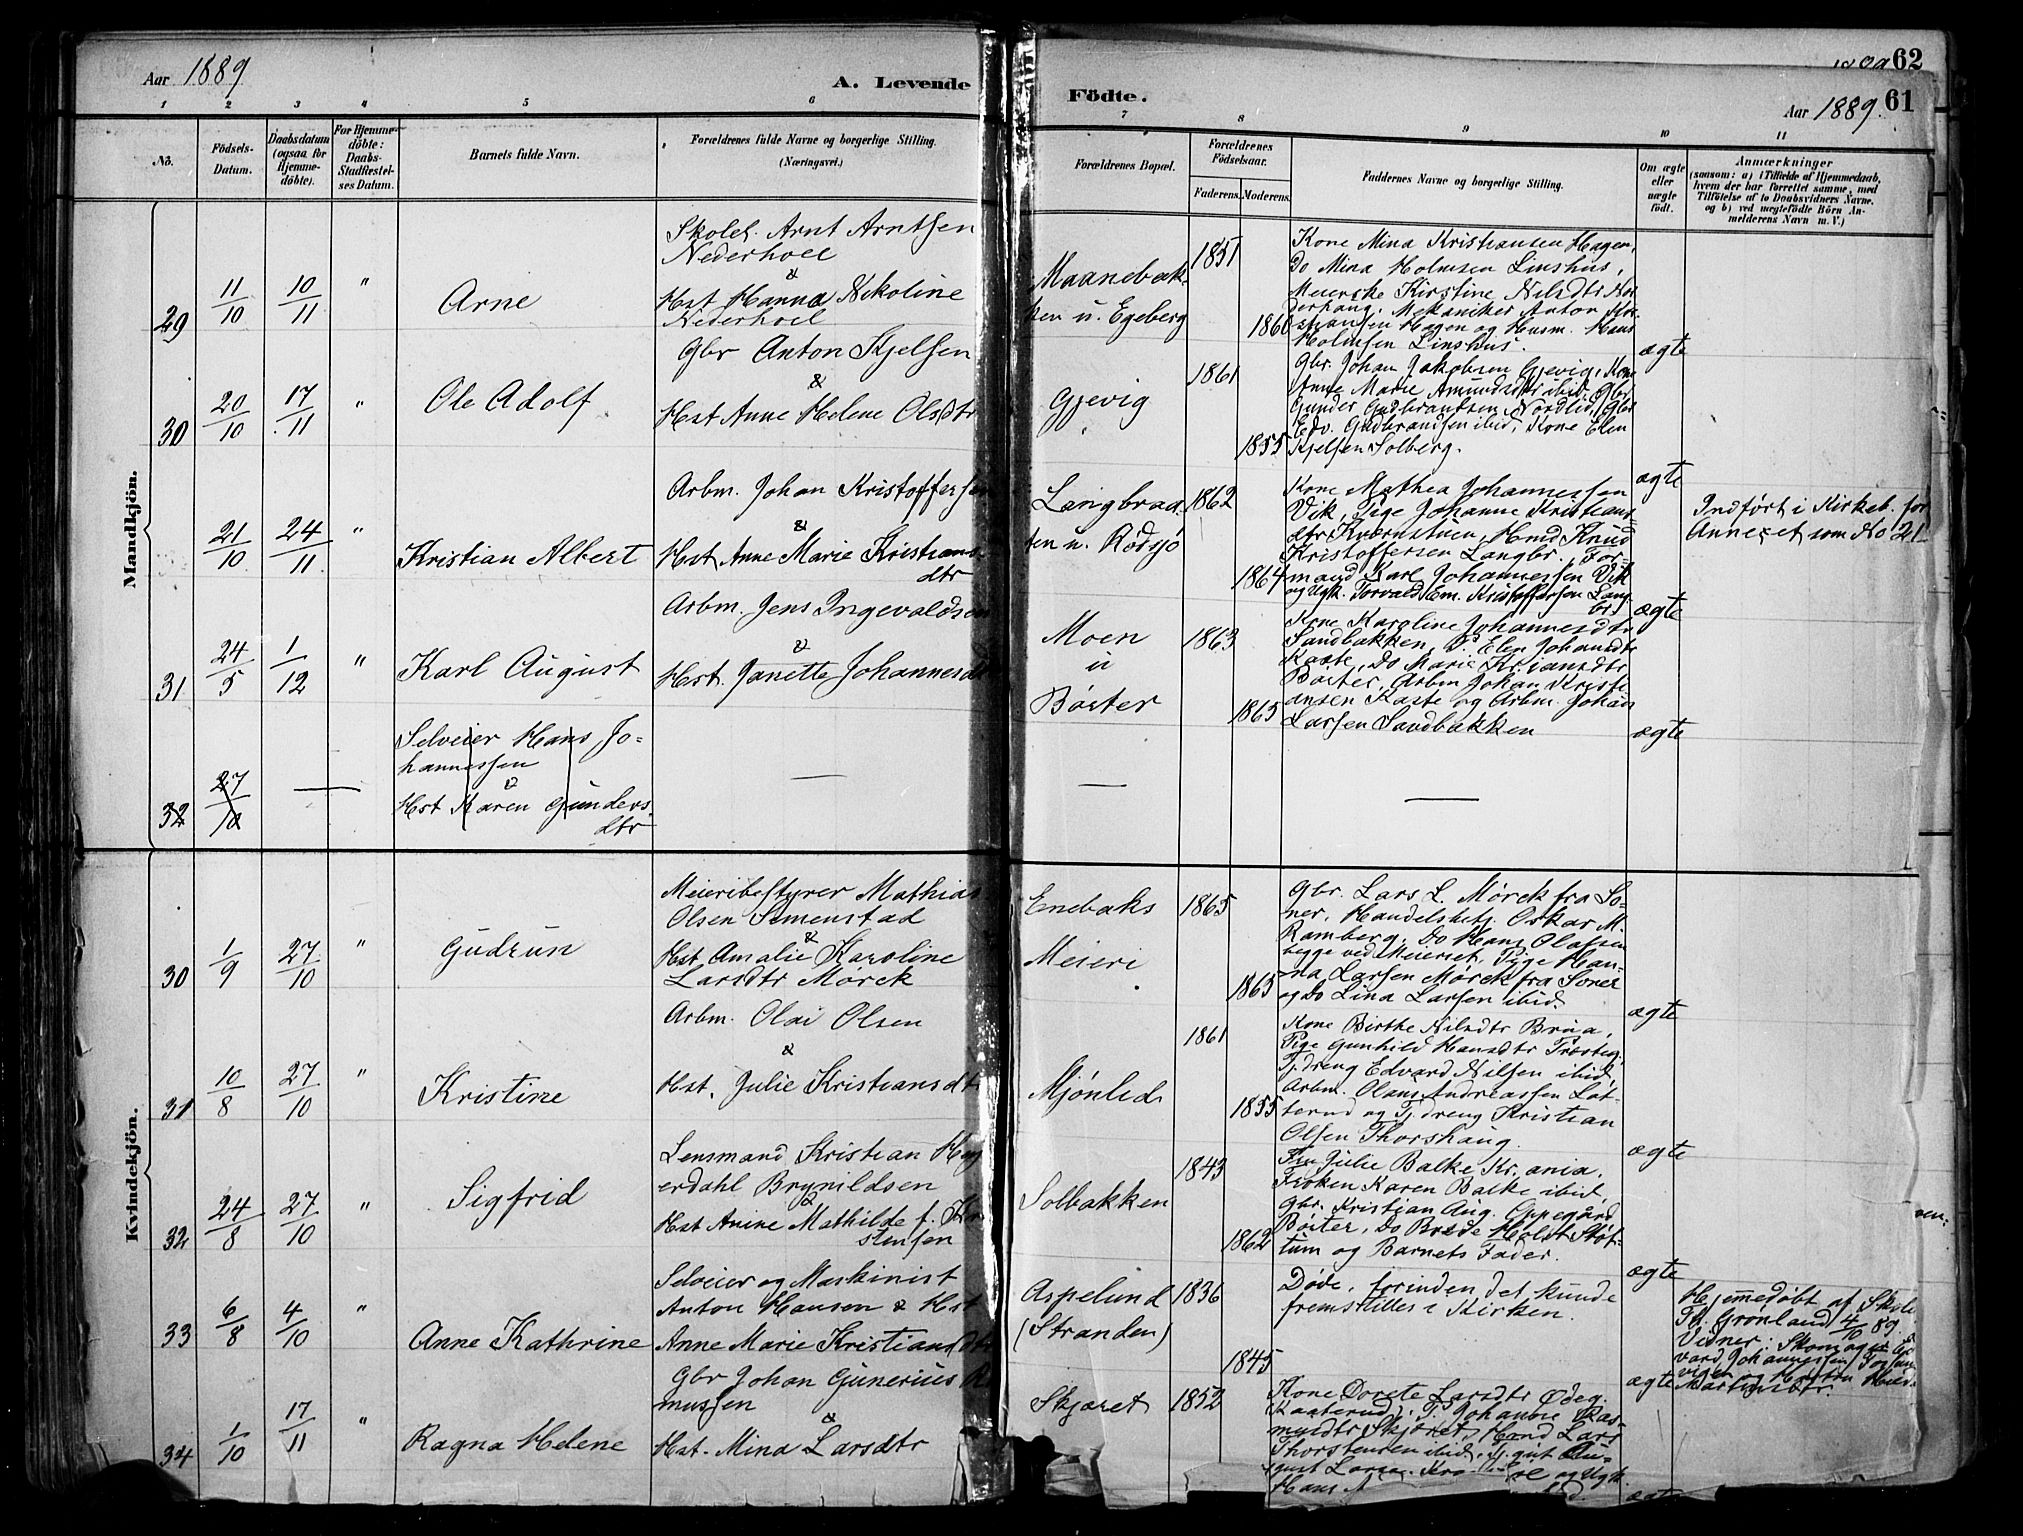 Aar 1889
A. Levende
Födte.
Aar 1889.
61
62
1 2 3 4 5 6 7 8 9 10 11
No.
Födsels-
Datum.
Daabsdatum
(ogsaa for
Hjemme-
döbte).
For Hjemme-
döbte:
Daabs-
Stadfæstel-
ses Datum.
Barnets fulde Navn.
Forældrenes fulde Navne og borgerlige Stilling.
(Næringsvei.)
Forældrenes Bopæl.
Forældrenes
Födselsaar.
Faderens. Moderens.
Faddernes Navne og borgerlige Stilling.
Om ægte
eller
uægte
födt.
Anmærkninger
(saasom: a) i Tilfælde af Hjemmedaab,
hvem der har forrettet samme, med
Tilföielse af to Daabsvidners Navne,
og b) ved uægtefödte Börn An-
melderens Navn m. V.)
Mandkjön.
29
11/10
10/11
"
Arne
Skolel. Arnt Arntsen
Nederhoel
&
Hst Hanna Nikoline
Nederhoel
Maanebak-
ken u. Egeberg
1851
1860
Kone Mina Kristiansen Hagen,
Do Mina Holmsen Linshus,
Meierske Kirstine Nilsdtr Nor
derhaug, Mekaniker Anton Kri-
stiansen Hagen og Husm. Hans
Holmsen Linshus.
ægte
30
20/10
17/11
"
Ole Adolf
Gbr Anton Kjelsen
&
Hst Anne Helene Olsdtr
Gjevig
1861
1855
Gbr. Johan Jakobsen Gjevig, Kone
Anne Marie Amundsdtr ibid, Gbr
Gunder Gudbrandsen Nordlid, Gbr
Edv. Gudbrandsen ibid, Kone Elen
Kjelsen Solberg.
ægte
21/10
24/11
"
Kristian Albert
Arbm. Johan Kristoffersen
&
Hst Anne Marie Kristians-
dtr
Langbraa-
ten u. Rødsjø
1862
1864
Kone Mathea Johannessen
Vik, Pige Johanne Kristians-
dtr Kvernstuen, Hmd Knud
Kristoffersen Langbr., For-
mand Karl Johannessen Vik
og Ugk. Torvald Em. Kristoffersen Lang
br.
ægte
Indført i Kirkeb. for
Annexet som No 21
31
24/5
1/12
"
Karl August
Arbm. Jens Ingevaldsen
&
Hst. Janette Johannesd
Moen
u
Børter
1863
1865
Kone Karoline Johannesdtr
Sandbakken, P. Elen Johansdtr
Kaste, Do Marie Kr.iansdtr
Børter, Arbm Johan Kristi-
ansen Kaste og Arbm. Johan
Larsen Sandbakken
ægte
32
27/10
Selveier Hans Jo-
hannessen
&
Hst Karen Gunders
dtr
Kvindekjön.
30
1/9
27/10
"
Gudrun
Meieribestyrer Mathias
Olsen Simenstad
&
Hst Amalie Karoline
Larsdtr Mørck
Enebaks
Meieri
1865
1865
Gbr. Lars L. Mørck fra So-
ner, Handelsbetj. Oskar M.
Ramberg, Do Hans Olafsen
begge ved Meieriet, Pige Han-
na Larsen Mørck fra Soner
og Do Lina Larsen ibid
ægte
31
10/8
27/10
"
Kristine
Arbm. Olai Olsen
&
Hst. Julie Kristiansdtr
Mjønlid
1861
1855
Kone Birthe Nilsdtr Brua,
Pige Gunhild Hansdtr Præsteg.
Tj.dreng Edvard Nilsen ibid,
Arbm. Olaus Andreassen Løt-
terud og Tj.dreng Kristian
Olsen Thorshaug.
ægte
32
24/8
27/10
"
Sigfrid
Lensmand Kristian Heg
erdahl Brynildsen
&
Hst Anine Mathilde f. Kr
stensen
Solbakken
1843
1862
Fru Julie Balke Kr.ania,
Frøken Karen Balke ibid,
Gbr. Kristian Aug. Oppegård
Børter, Do Brede Holst Støt-
tum og Barnets Fader.
ægte
33
6/8
4/10
"
Anne Kathrine
Selveier og Maskinist
Anton Hansen & Hst
Anne Marie Kristiansdtr
Aspelund
(Stranden)
1836
1845
Døde, forinden det kunde
fremstilles i Kirken.
ægte
Hjemmedøbt af Skole
Th. Grønlund 4/10 89.
Vidner: Skomager Ed
vard Johannessen
34
1/10
17/11
"
Ragna Helene
Gbr Johan Gunerius R
mussen
&
Hst. Mina Larsdtr
Skjæret
1852
Kone Dorete Larsdtr Ødeg.
Kaaterud, P. Johanne Ras-
musdtr Skjæret, Hmd Lars
Thorstensen ibid, Tj.gut Au-
gust Larsen
Hans
ægte